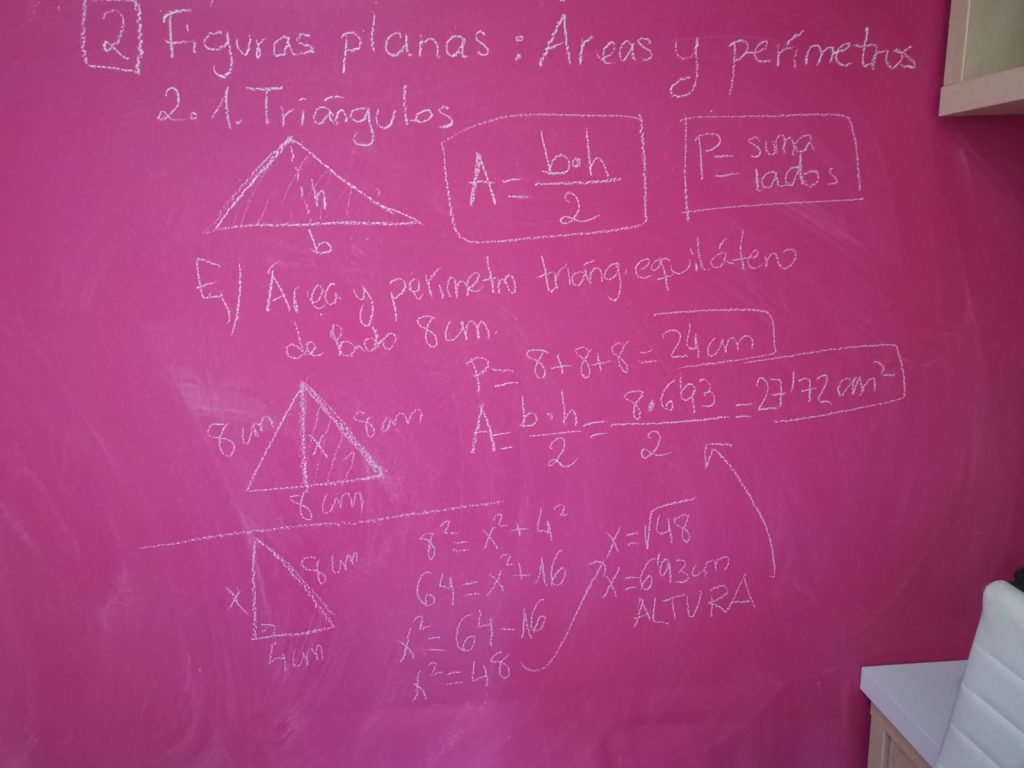 2 Figuras planas: Áreas y perímetros
2.1. Triángulos
h
b
A = b·h / 2
P = suma lados
E) Área y perímetro triáng. equilátero
de lado 8 cm.
P = 8+8+8 = 24 cm
A = b·h / 2 = 8·6'93 / 2 = 27'72 cm²
8 cm
x
8 cm
8 cm
x
8 cm
4 cm
8² = x² + 4²
64 = x² + 16
x² = 64 - 16
x² = 48
x = √48
x = 6'93 cm
ALTURA